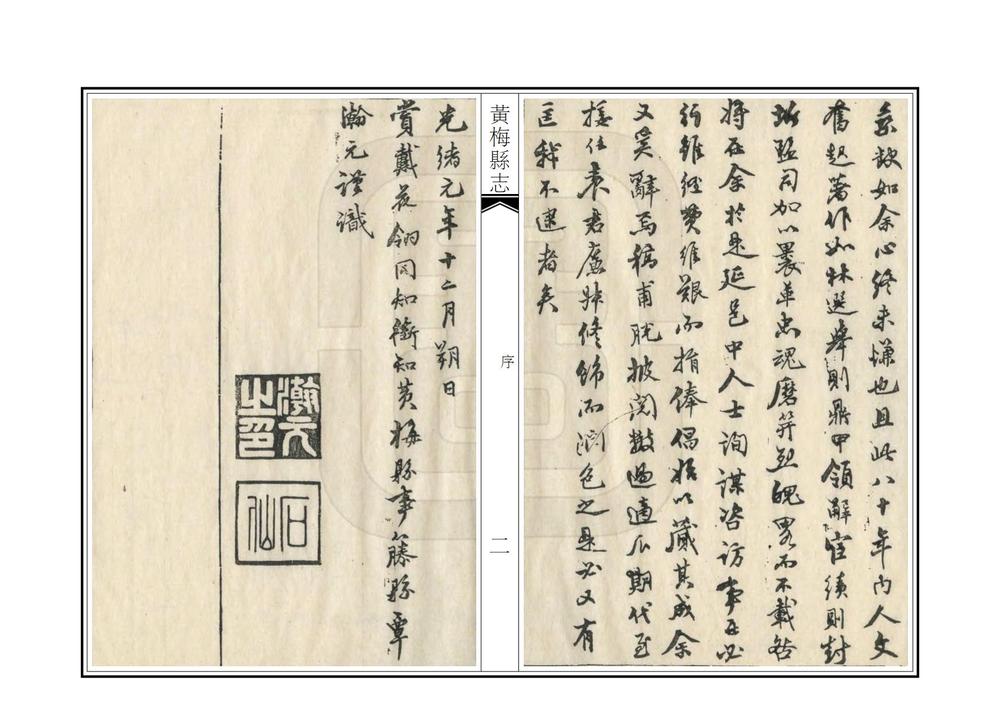 気敖如余心終未慊也且此八十年內人文
奮起著作如林選舉則鼎甲領解宦績則封
圻疆司加以裹革忠魂磨笄烈魄畧而不載咎
將在余於是延邑中人士詢謀咨訪事在必
行雖經費維艱不揣俸倡始以蕆其成余
又奚辭焉稿甫脫披閱數過適瓜期代至
接任袁君廉叔修飾而潤色之是必又有
匡我不逮者矣
光緒元年十二月朔日
賞戴花翎同知銜知黃梅縣事藤縣覃
瀚元謹識
瀚元之印
石仙
黃梅縣志
序
二